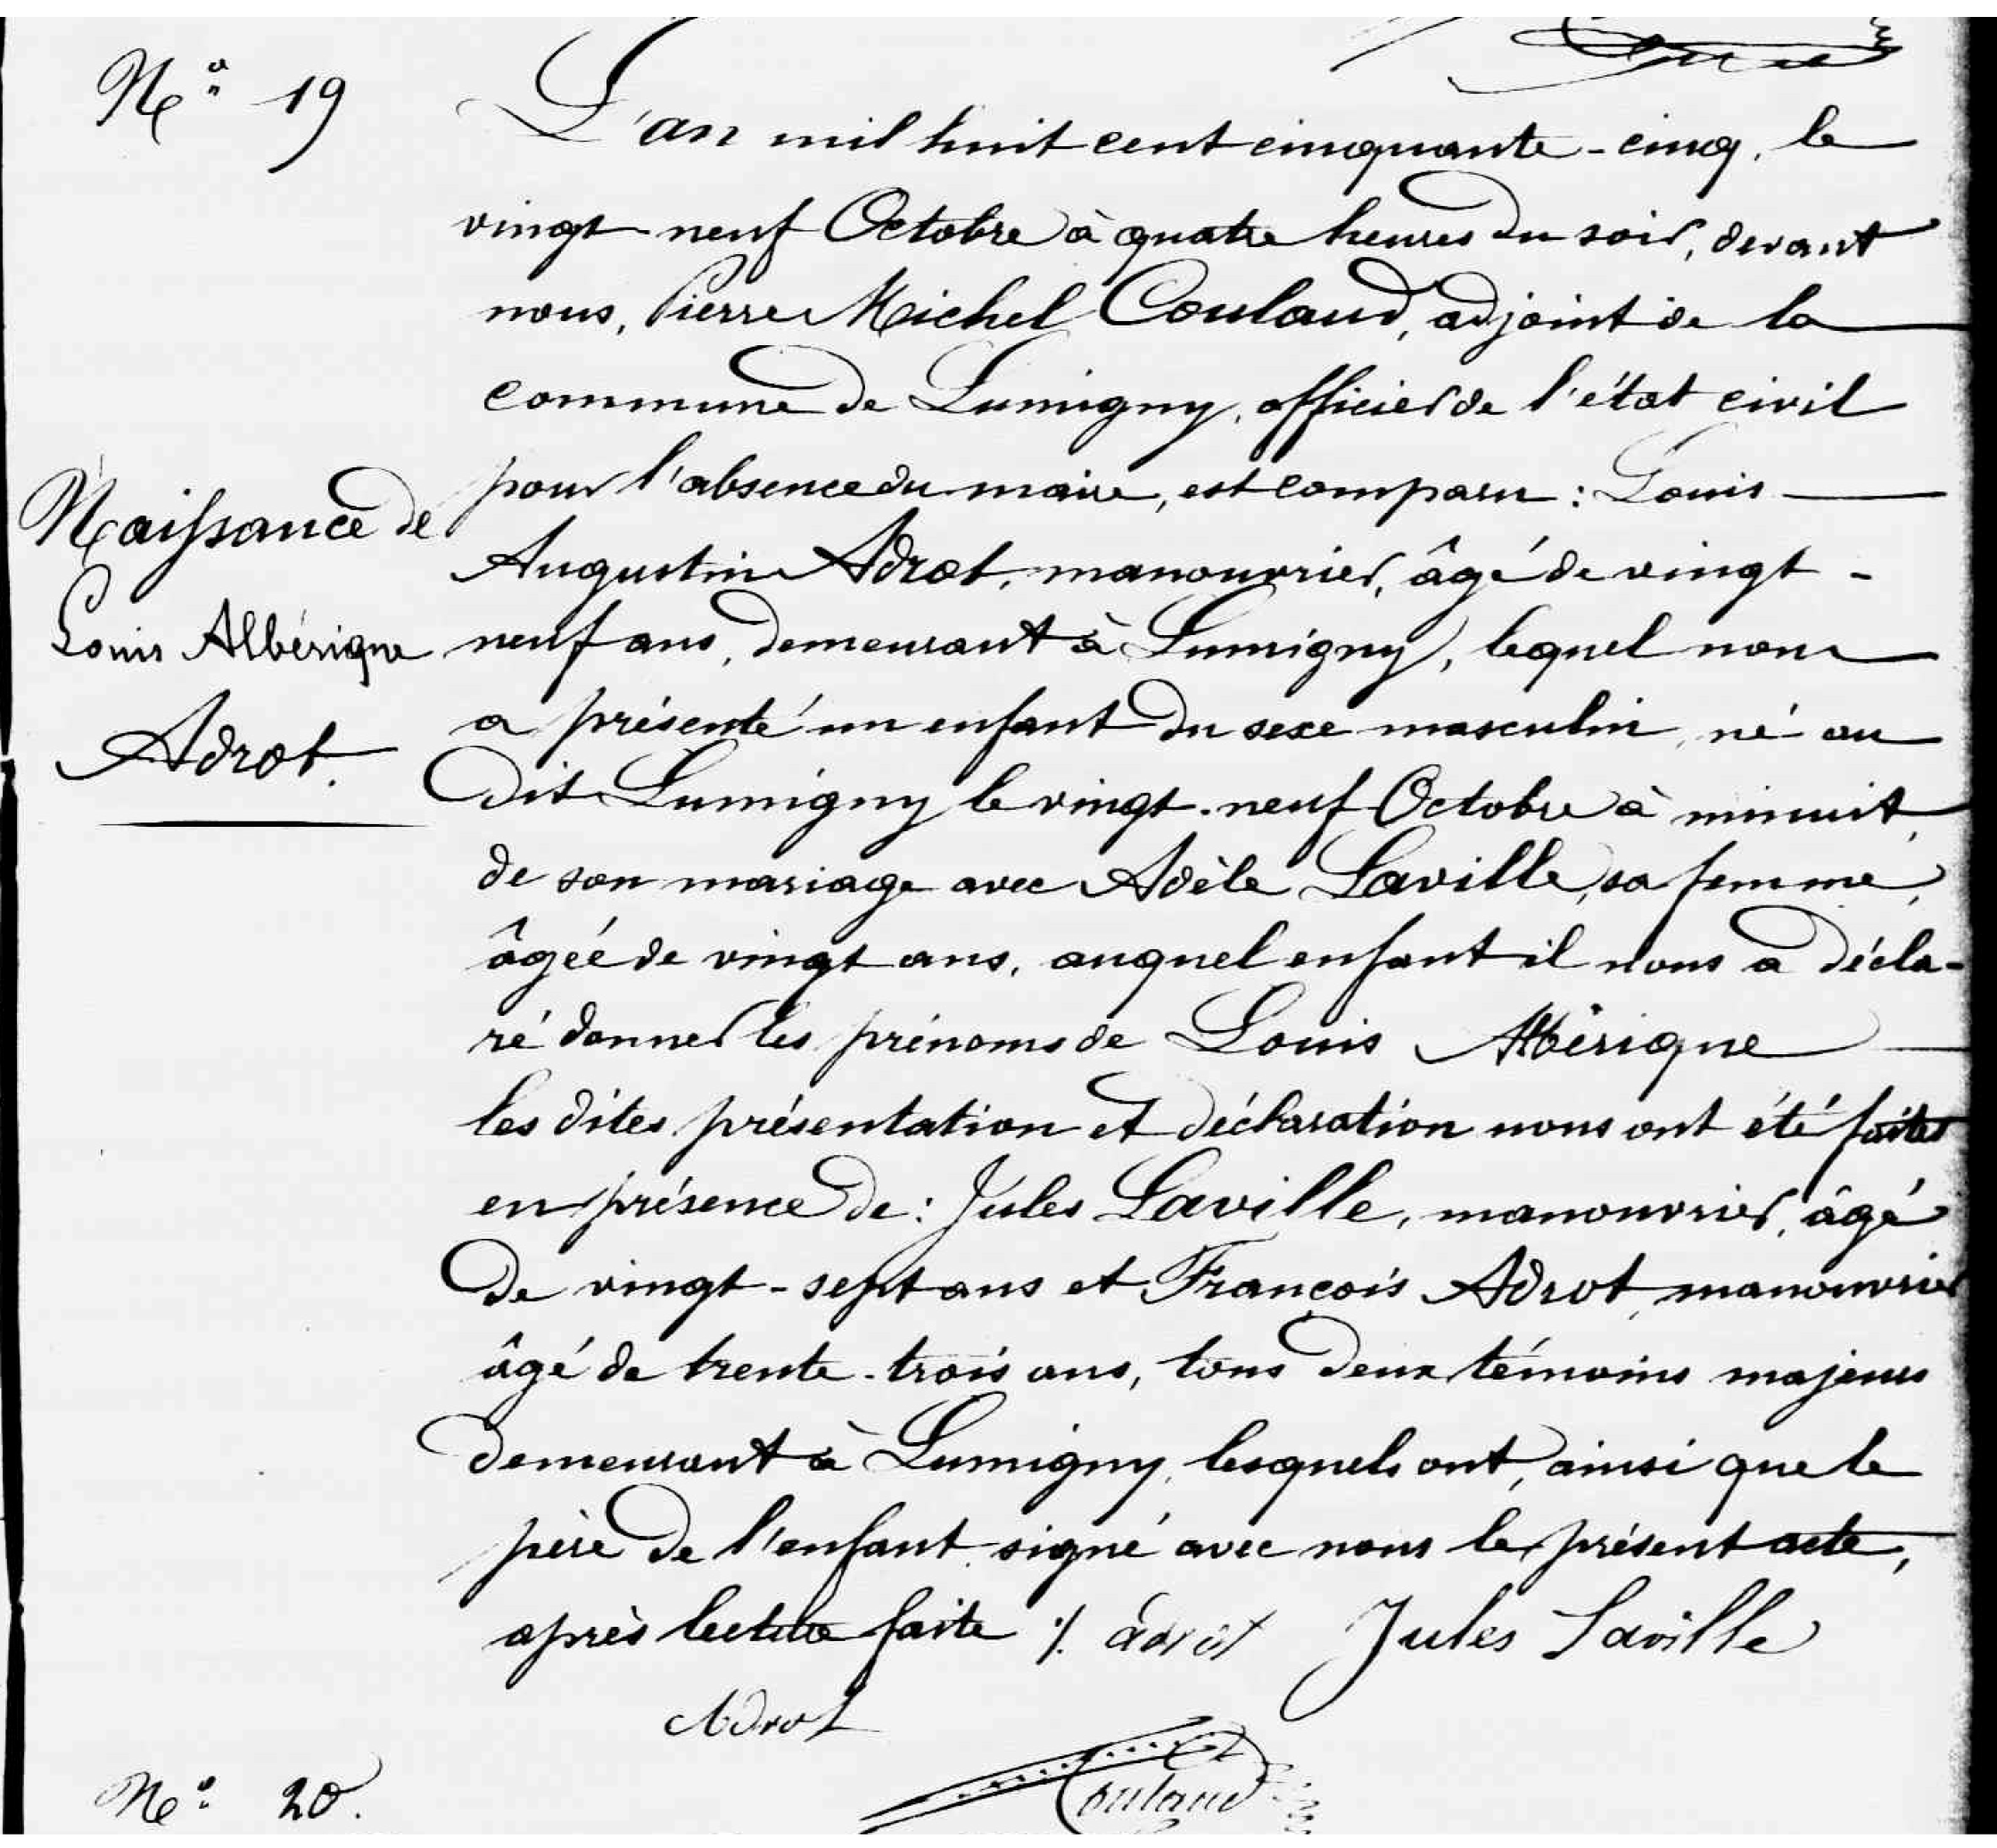 Nº 19
L'an mil huit cent cinquante-cinq, le
vingt-neuf Octobre à quatre heures du soir, devant
nous, Pierre Michel Coulaud, adjoint de la
commune de Lumigny, officier de l'état civil
pour l'absence du maire, est comparu : Louis
Naissance de
Louis Albérique
Adrot.
Augustin Adrot, manouvrier, âgé de vingt-
neuf ans, demeurant à Lumigny, lequel nous
a présenté un enfant du sexe masculin, né au
dit Lumigny le vingt-neuf Octobre à minuit,
de son mariage avec Adèle Laville, sa femme,
âgée de vingt ans, auquel enfant il nous a décla-
ré donner les prénoms de Louis Albérique
les dites présentation et déclaration nous ont été faites
en présence de : Jules Laville, manouvrier, âgé
de vingt-sept ans et François Adrot, manouvrier
âgé de trente-trois ans, tous deux témoins majeurs
demeurant à Lumigny, lesquels ont, ainsi que le
père de l'enfant signé avec nous le présent acte,
après lecture faite ·/. adrot Jules Laville
Adrot
Coulaud
Nº 20.